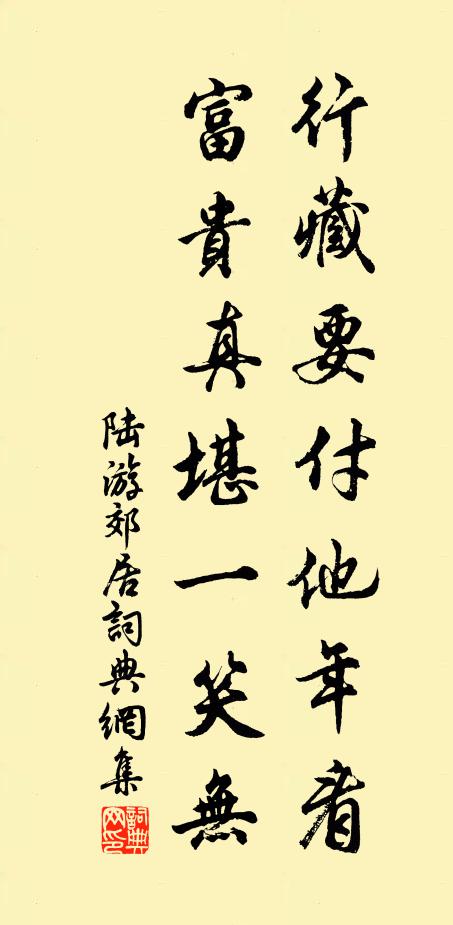 行藏要付他年看
富貴真堪一笑無
陸游郊居詞典網集
詞典網印